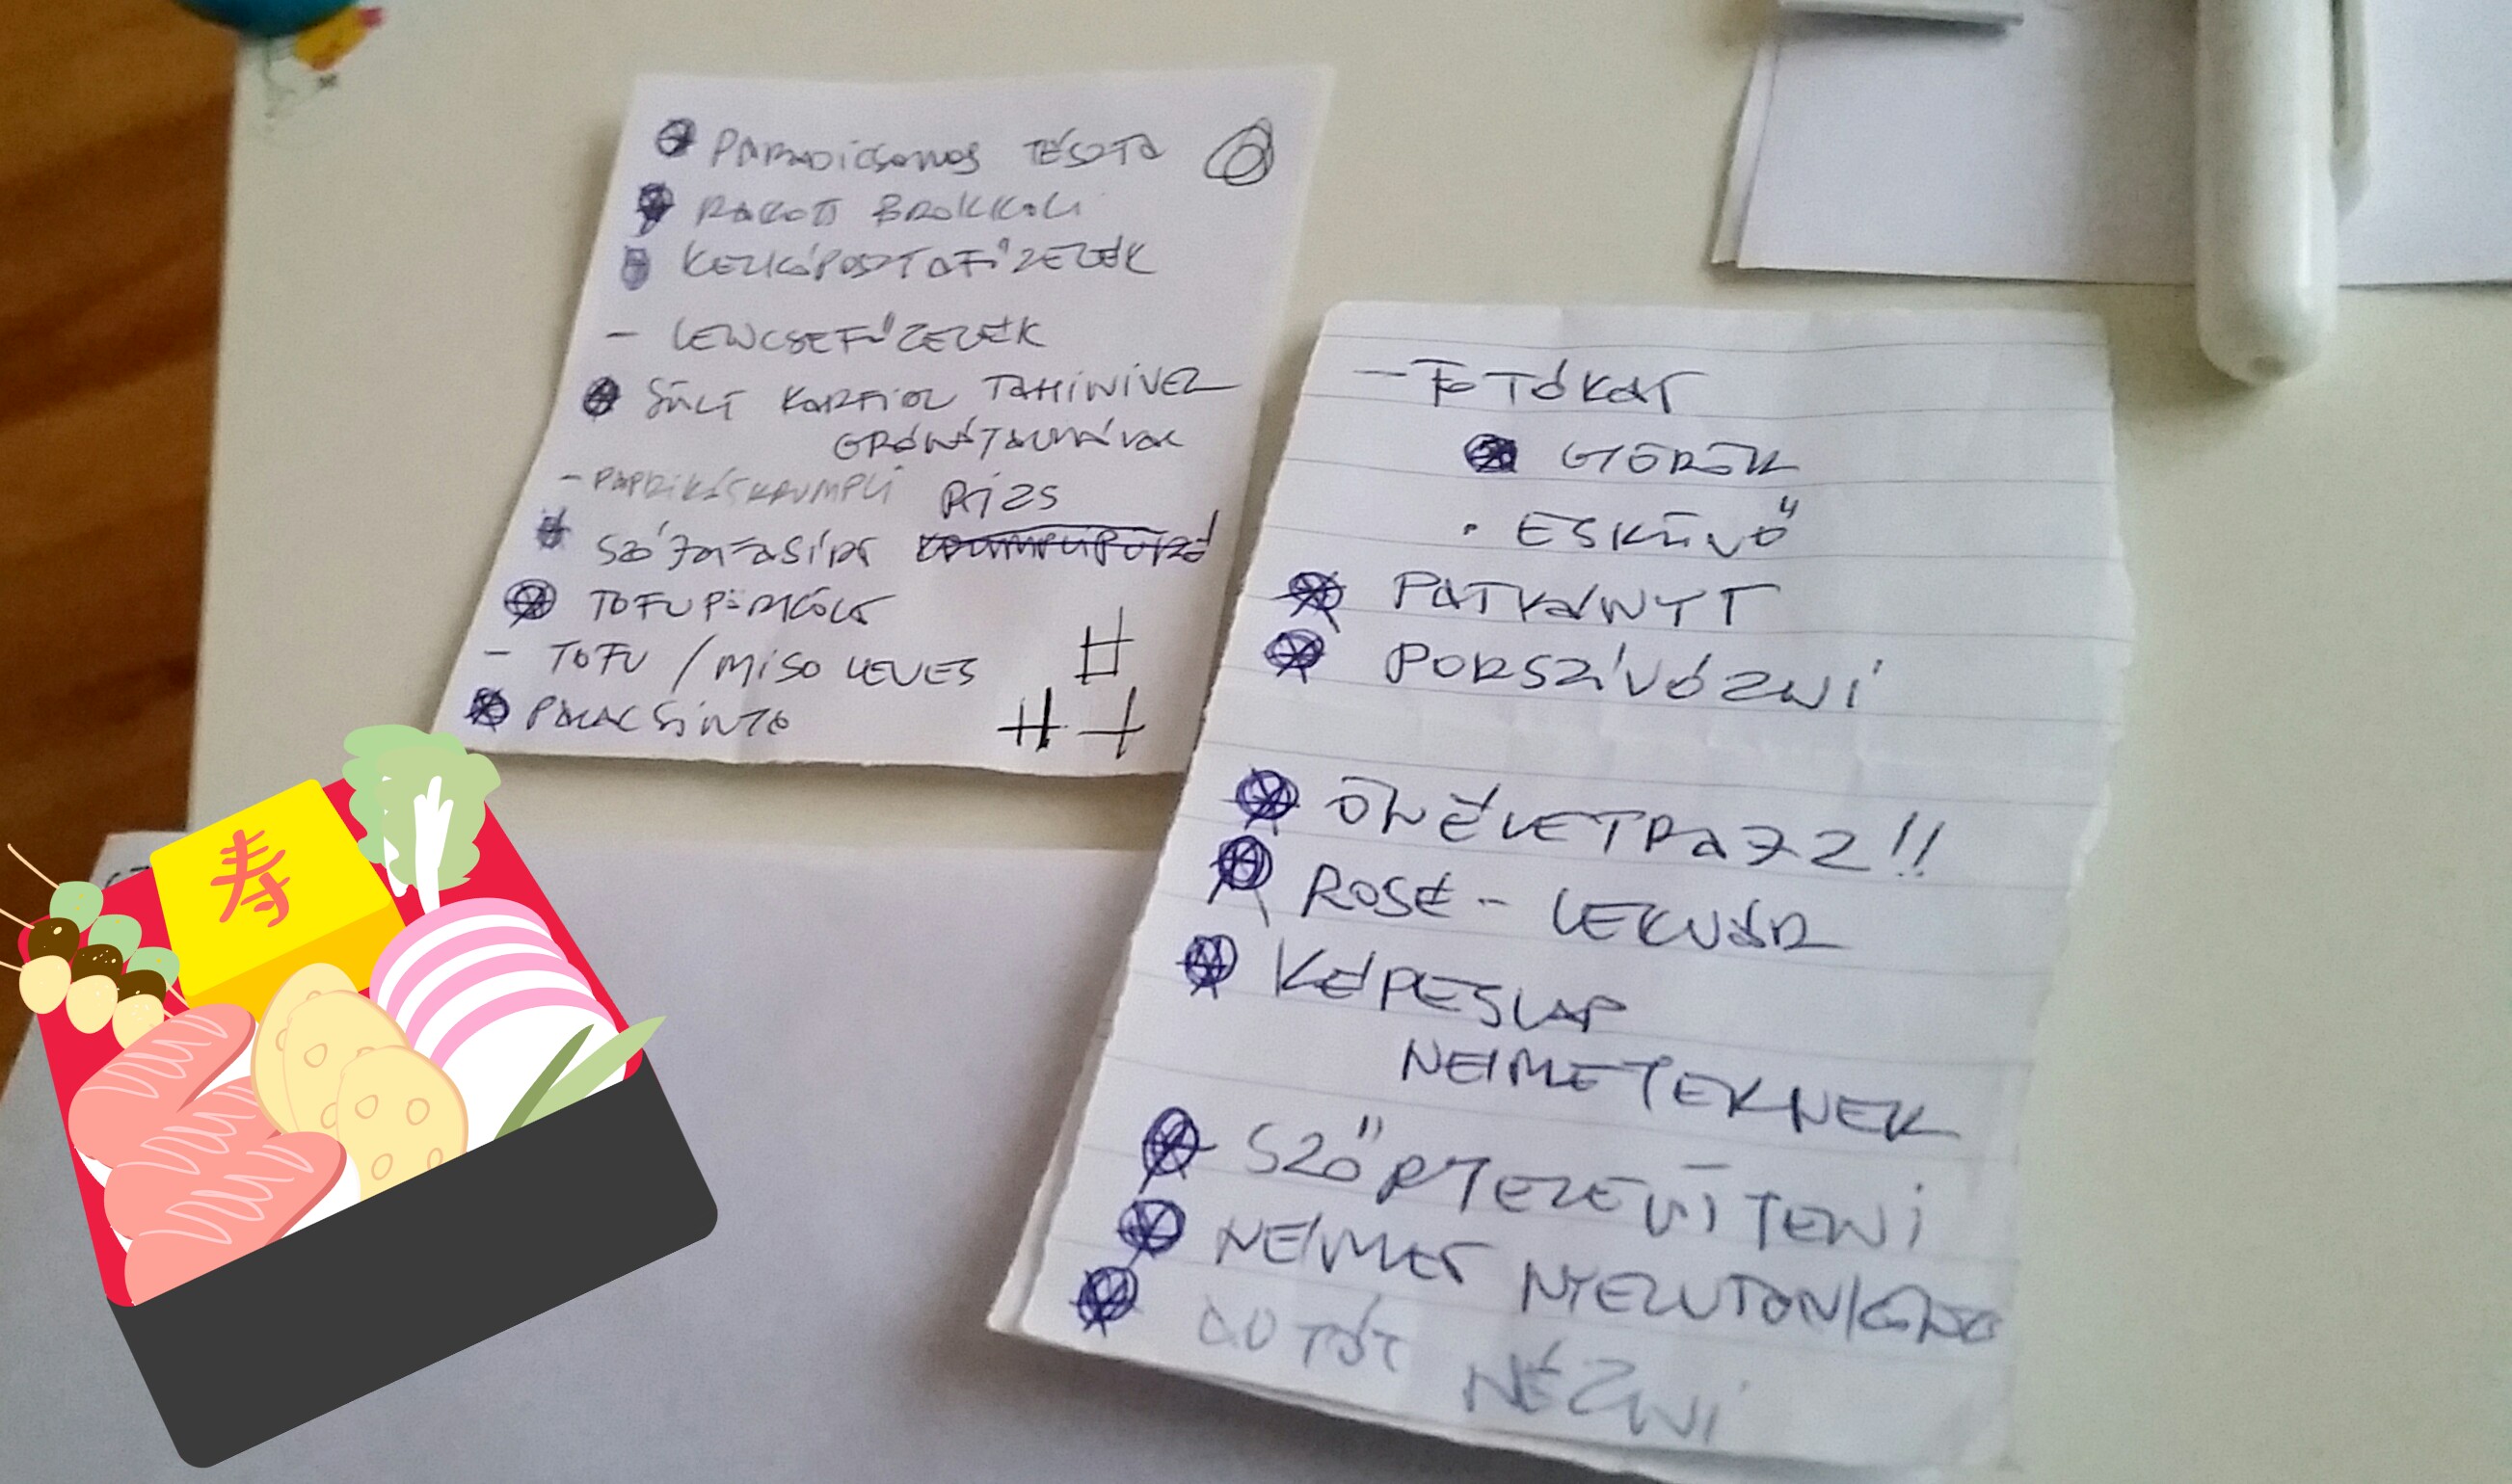 PARADICSOMOS TÉSZTA
RAKOTT BROKKOLI
KELKÁPOSZTAFŐZELÉK
- LENCSEFŐZELÉK
SÜLT KARFIOL TAHINIVEL
GRÁNÁTALMÁVAL
- PAPRIKÁSKRUMPLI
RIZS
SZÓJAFASÍRT KRUMPLIPÜRÉ
TOFUPÖRKÖLT
- TOFU / MISO LEVES
PALACSINTA
- FOTÓKAT
GÖRÖK
• ESKÜVŐ
PATKÁNYT
PORSZÍVÓZNI
ÖNÉLETRAJZ!!
ROSÉ - LEKVÁR
KÉPESLAP
NÉMETEKNEK
SZŐRTELENÍTENI
NÉMET NYELVTANKÖNYV
AUTÓT NÉZNI
寿